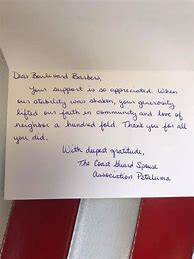 Dear Boulevard Barbers,
Your support is so appreciated. When
our stability was shaken, your generosity
lifted our faith in community and love of
neighbor a hundred fold. Thank you for all
you did.
With depest gratitude,
The Coast Guard Spouse
Association Petaluma